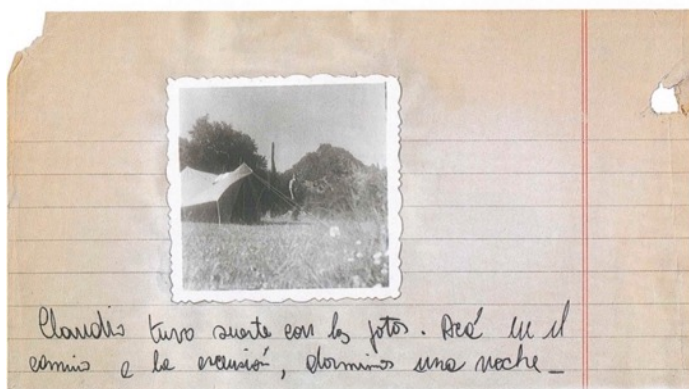 Claudio tuvo suerte con las fotos. Acá en el
camino a la excursión, dormimos una noche_